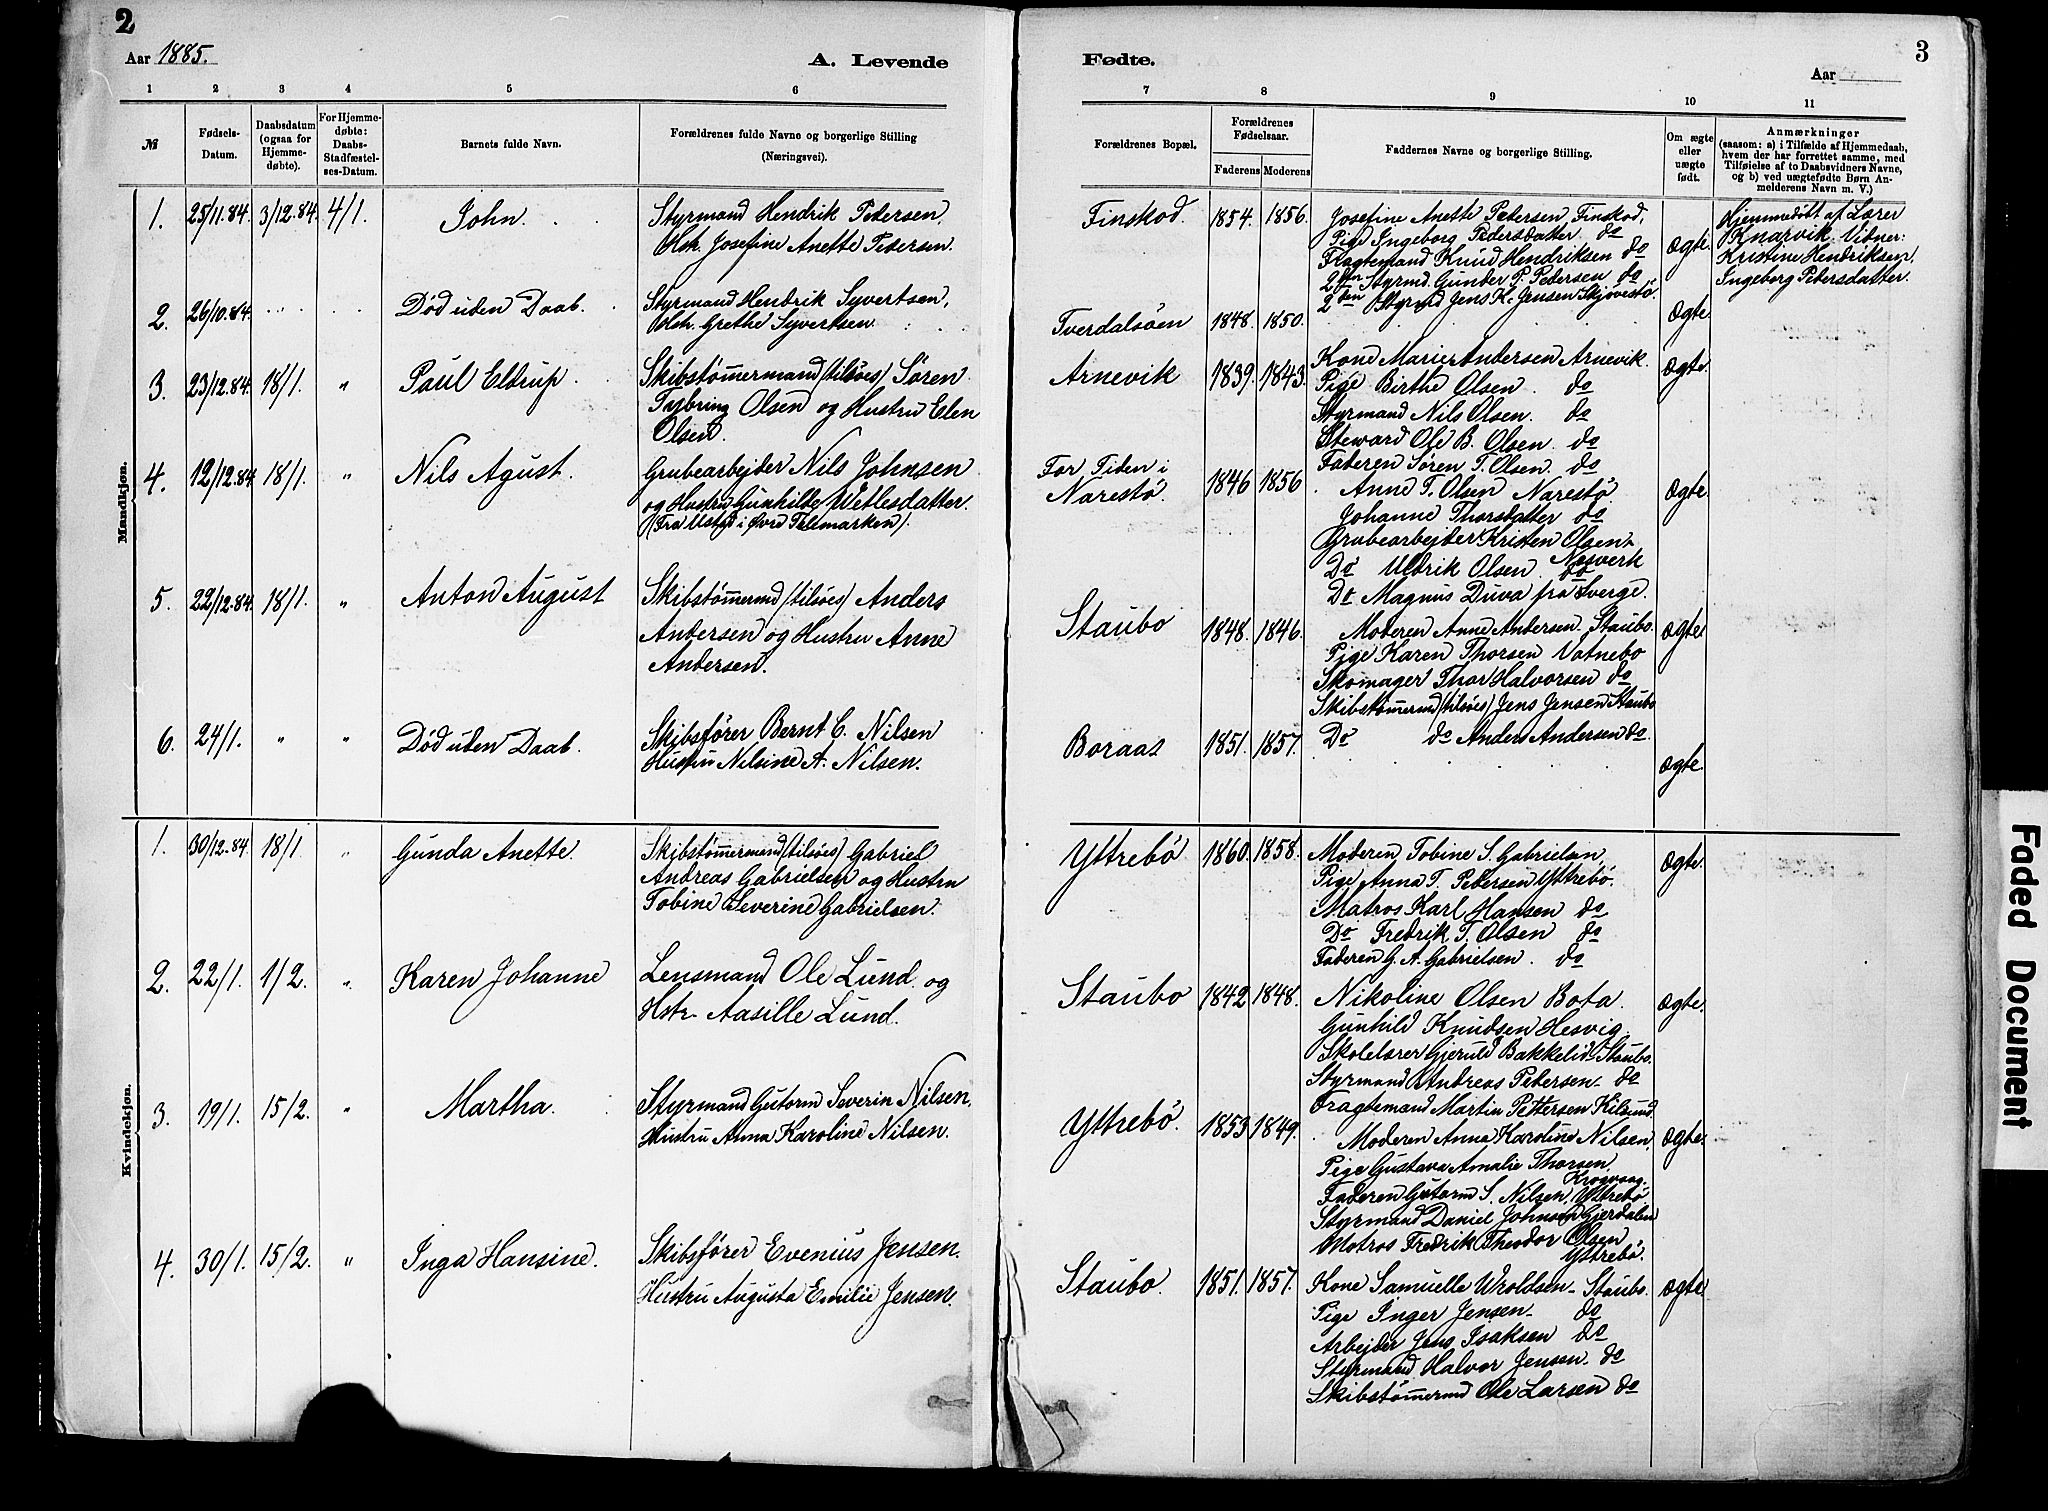 2
Aar 1885.
A. Levende
1 2 3 4 5 6
№
Fødsels-
Datum.
Daabsdatum
(ogsaa for
Hjemme-
døbte).
For Hjemme-
døbte:
Daabs-
Stadfæstel-
ses-Datum.
Barnets fulde Navn.
Forældrenes fulde Navne og borgerlige Stilling
(Næringsvei).
Mandkjøn.
1. 25/11.84. 3/12.84. 4/1. John.
Styrmand Hendrik Petersen,
Hstr. Josefine Anette Petersen.
2. 26/10.84. Død uden Daab.
Styrmand Hendrik Syvertsen,
Hstr. Grethe Syvertsen
3. 23/12.84. 18/1. " Paul Eltrup.
Skibstømmermand (tilsøes) Søren
Tybring Olsen og Hustru Elen
Olsen.
4. 12/12.84 18/1. " Nils Agust.
Grubearbejder Nils Johnsen
og Hustru Gunhilde Wetlesdatter.
5. 22/12.84. 18/1. " Anton August
Skibstømmermd (tilsøes) Anders
Andersen og Hustru Anne
Andersen.
6. 24/1. " " Død uden Daab.
Skibsfører Bernt C. Nilsen
Hustru Nilsine A. Nilsen.
Kvindekjøn.
1. 30/12.84. 18/1 " Gunda Anette.
Skibstømmermand (tilsøes) Gabriel
Andreas Gabrielsen og Hustru
Tobine Severine Gabrielsen.
2. 22/1. 1/2. " Karen Johanne
Lensmand Ole Lund og
Hstr. Aasille Lund.
3. 19/1. 15/2. " Martha.
Styrmand Gutorm Severin Nilsen,
Hustru Anna Karoline Nilsen.
4. 30/1. 15/2. " Inga Hansine.
Skibsfører Evenius Jensen.
Hustru Augusta Emilie Jensen.
Fødte.
3
Aar
7 8 9 10 11
Forældrenes Bopæl.
Forældrenes
Fødselsaar.
Faderens Moderens
Faddernes Navne og borgerlige Stilling.
Om ægte
eller
uægte
født.
Anmærkninger
(saasom: a) i Tilfælde af Hjemmedaab,
hvem der har forrettet samme, med
Tilføielse af to Daabsvidners Navne,
og b) ved uægtefødte Børn An-
melderens Navn m. V.)
Finskod. 1854. 1856.
Josefine Anette Petersen, Finskod,
Pige Ingeborg Pedersdatter. do
Fragtemand Knud Hendriksen do
Styrmd. Gunder P. Petersen do
2den Styrmd Jens K. Jensen Skjevestø.
Ægte.
Hjemmedøbt af Lærer
Knarvik. Vidner:
Kristine Hendriksen,
Ingeborg Petersdatter.
Tverdalsøen 1848. 1850. Ægte.
Arnevik 1839. 1843.
Kone Marie Andersen Arnevik.
Pige Birthe Olsen. do
Styrmand Nils Olsen. do
Steward Ole B. Olsen. do
Faderen Søren T. Olsen. do
Ægte.
For Tiden i
Narestø. 1846 1856
Anne T. Olsen Narestø.
Johanne Thorsdatter do
Grubearbejder Kristen Olsen
Næsverk
Do Uldrik Olsen do
Do Magnus Duva fra Sverge.
Ægte.
Staubo 1848. 1846.
Moderen Anne Andersen. Staubo.
Pige Karen Thorsen Vatnebo
Skomager Thor Halvorsen do
Skibstømermd (tilsøes) Jens Jensen Staubo
Do do Anders Andersen do.
Ægte.
Boraas 1851. 1857. Ægte.
Yttrebø 1860. 1858.
Moderen Tobine S. Gabrielsen,
Pige Anna T. Petersen Yttrebø.
Matros Karl Hansen do
Do Fredrik T. Olsen do
Faderen G. A. Gabrielsen. do
Ægte.
Staubo 1842 1848.
Nikoline Olsen Bota.
Gunhild Knudsen Hesvig.
Skolelærer Gjeruld Bakkelid. Staubo.
Styrmand Andreas Petersen do
Fragtemand Martin Pettersen Kilsund.
Ægte.
Yttrebø. 1853 1849.
Moderen Anna Karoline Nilsen,
Pige Gustava Amalie Thorsen,
Krogvaag.
Faderen Gutorm S. Nilsen, Yttrebø
Styrmand Daniel Johnsen Gjerdalen
Matros Fredrik Theodor Olsen
Yttrebø.
Ægte.
Staubo. 1851. 1857.
Kone Samuelle Wroldsen Staubo.
Pige Inger Jensen do
Arbejder Jens Isaksen do
Styrmand Halvor Jensen. do
Skibstømmermd Ole Larsen do
Ægte
Faded Document